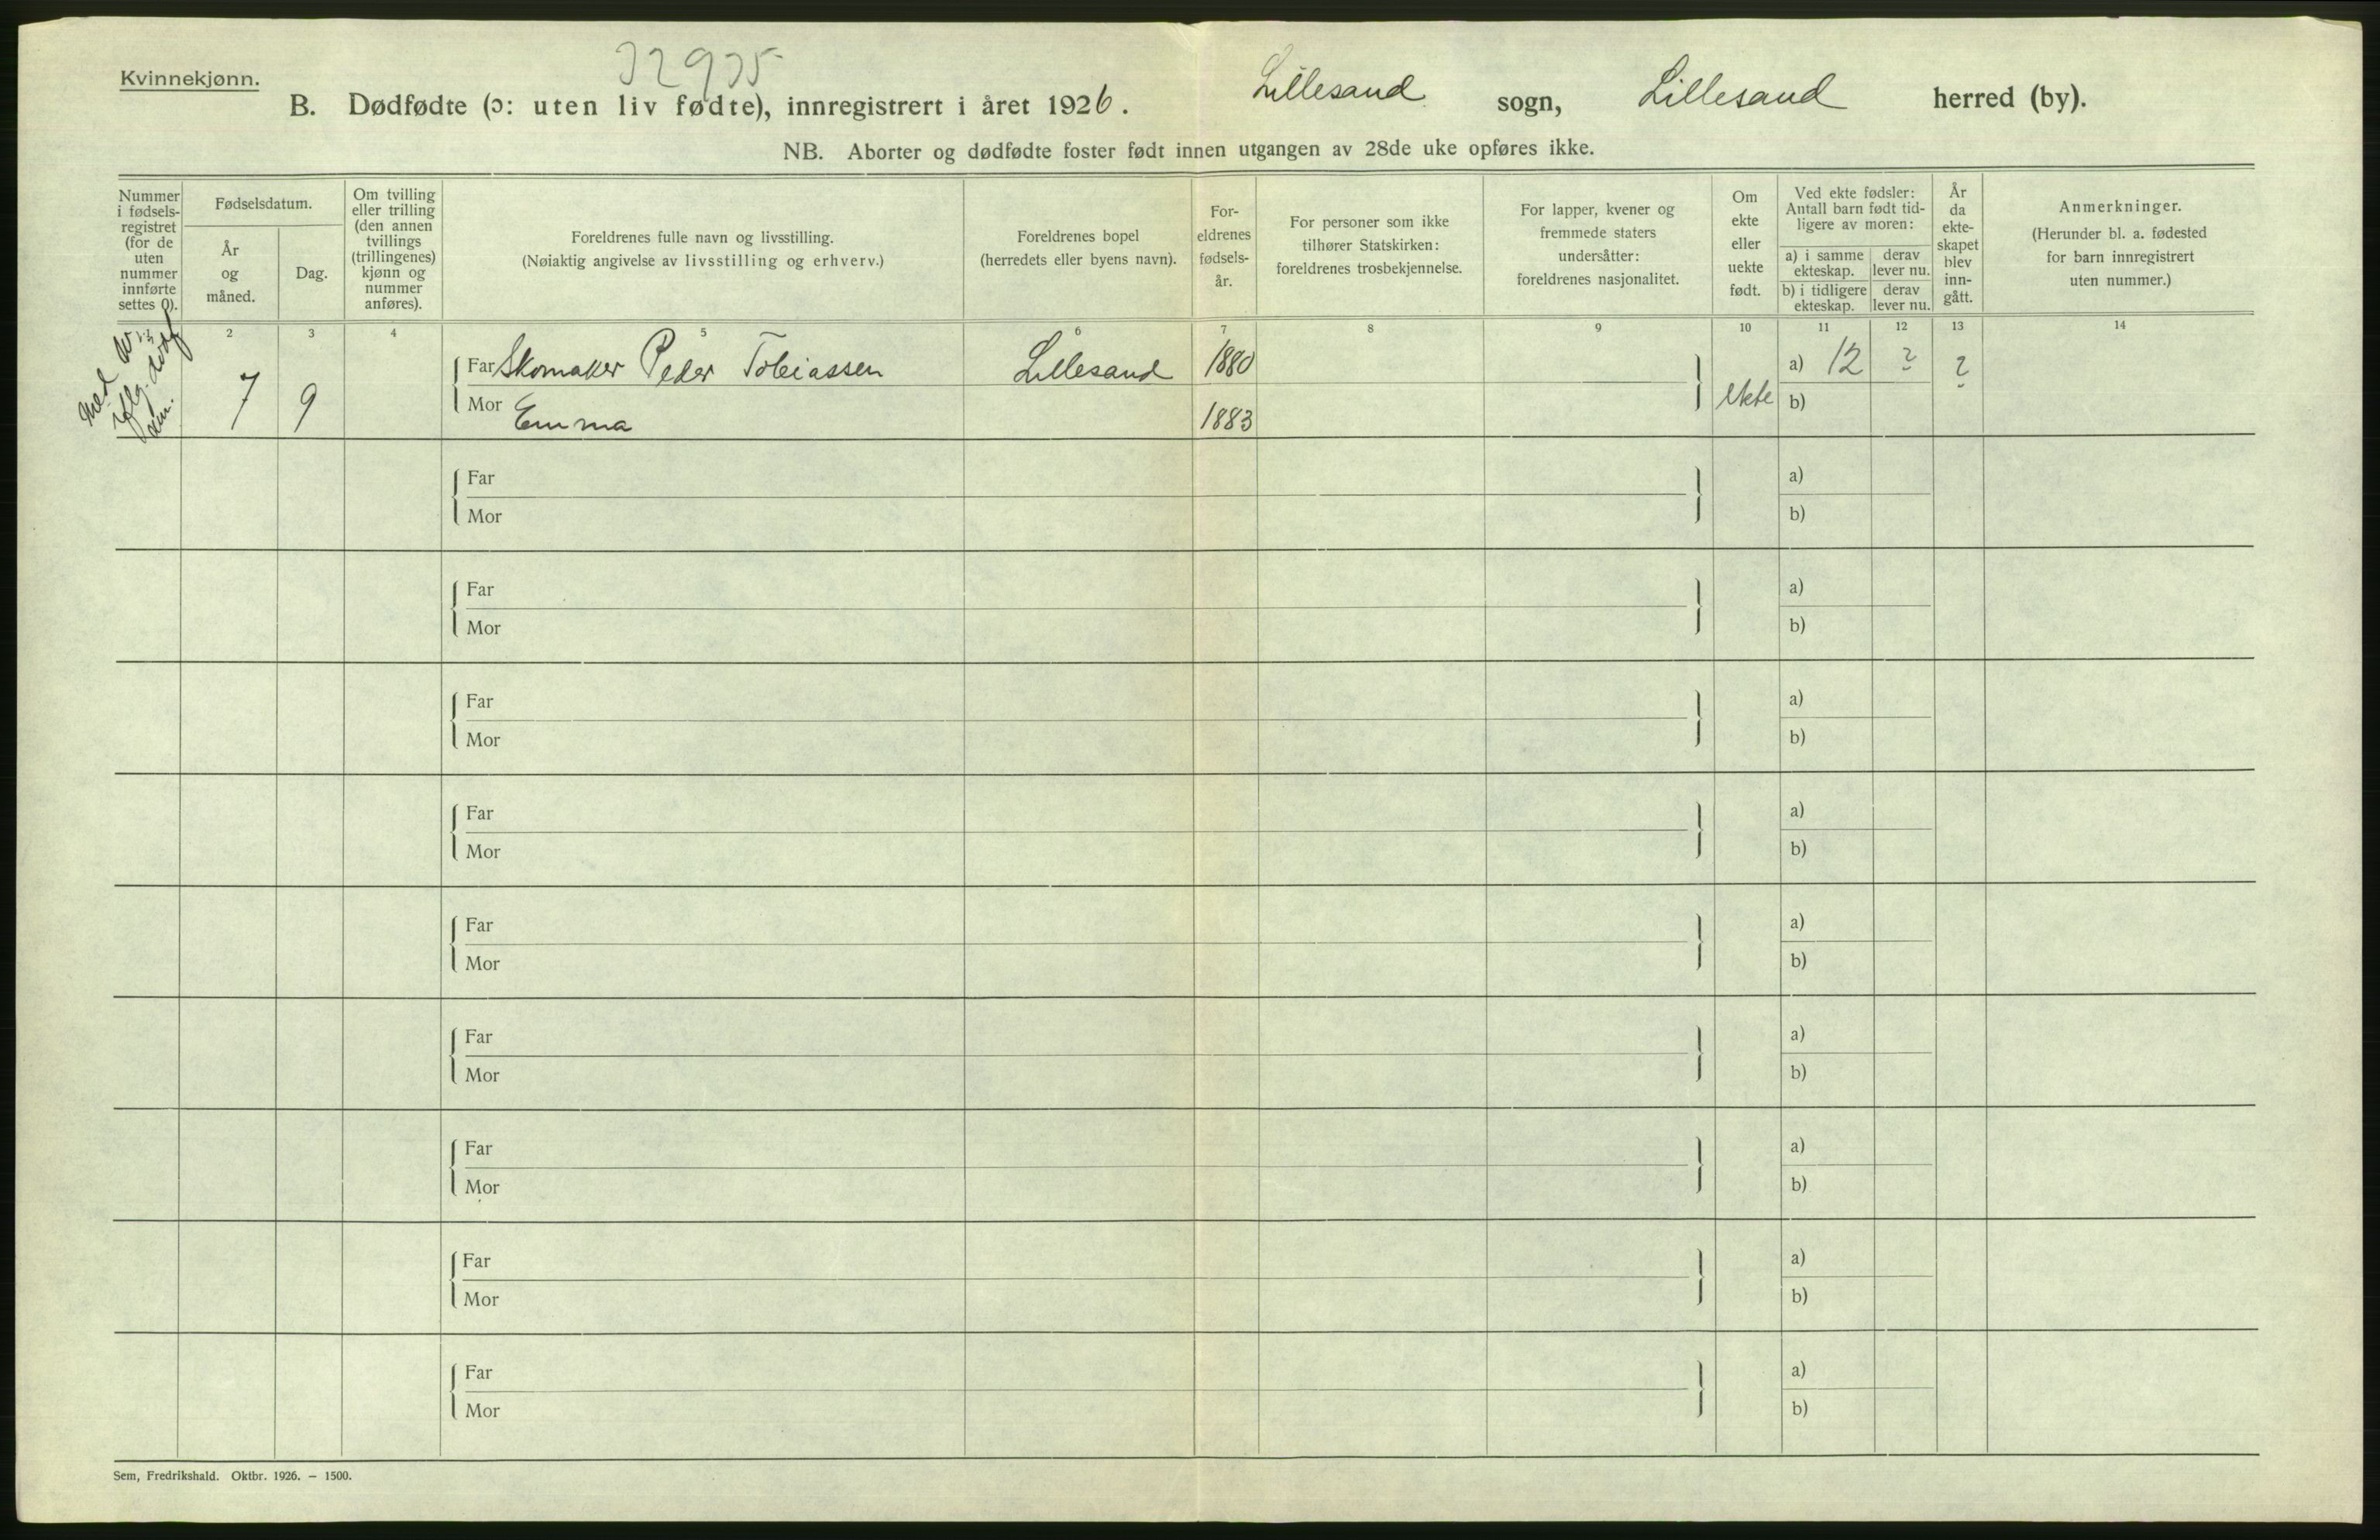 32935
Kvinnekjønn.
B. Dødfødte (ɔ: uten liv fødte), innregistrert i året 1926. Lillesand sogn, Lillesand herred (by).
NB. Aborter og dødfødte foster født innen utgangen av 28de uke opføres ikke.
Nummer i fødsels-registret (for de uten nummer innførte settes 0).
Fødselsdatum.
År og måned.
Dag.
Om tvilling eller trilling (den annen tvillings (trillingenes) kjønn og nummer anføres).
Foreldrenes fulle navn og livsstilling.
(Nøiaktig angivelse av livsstilling og erhverv.)
Foreldrenes bopel
(herredets eller byens navn).
For-eldrenes fødsels-år.
For personer som ikke tilhører Statskirken: foreldrenes trosbekjennelse.
For lapper, kvener og fremmede staters undersåtter: foreldrenes nasjonalitet.
Om ekte eller uekte født.
Ved ekte fødsler: Antall barn født tid-ligere av moren:
a) i samme ekteskap.
derav lever nu.
b) i tidligere ekteskap.
derav lever nu.
År da ekte-skapet blev inn-gått.
Anmerkninger.
(Herunder bl. a. fødested for barn innregistrert uten nummer.)
2 3 4 5 6 7 8 9 10 11 12 13 14
7 9
Far Skomaker Peder Tobiassen Lillesand 1880 a) 12 ? ?
Mor Emma 1883 ekte b)
Far a)
Mor b)
Far a)
Mor b)
Far a)
Mor b)
Far a)
Mor b)
Far a)
Mor b)
Far a)
Mor b)
Far a)
Mor b)
Far a)
Mor b)
Far a)
Mor b)
Sem, Fredrikshald. Oktbr. 1926. – 1500.